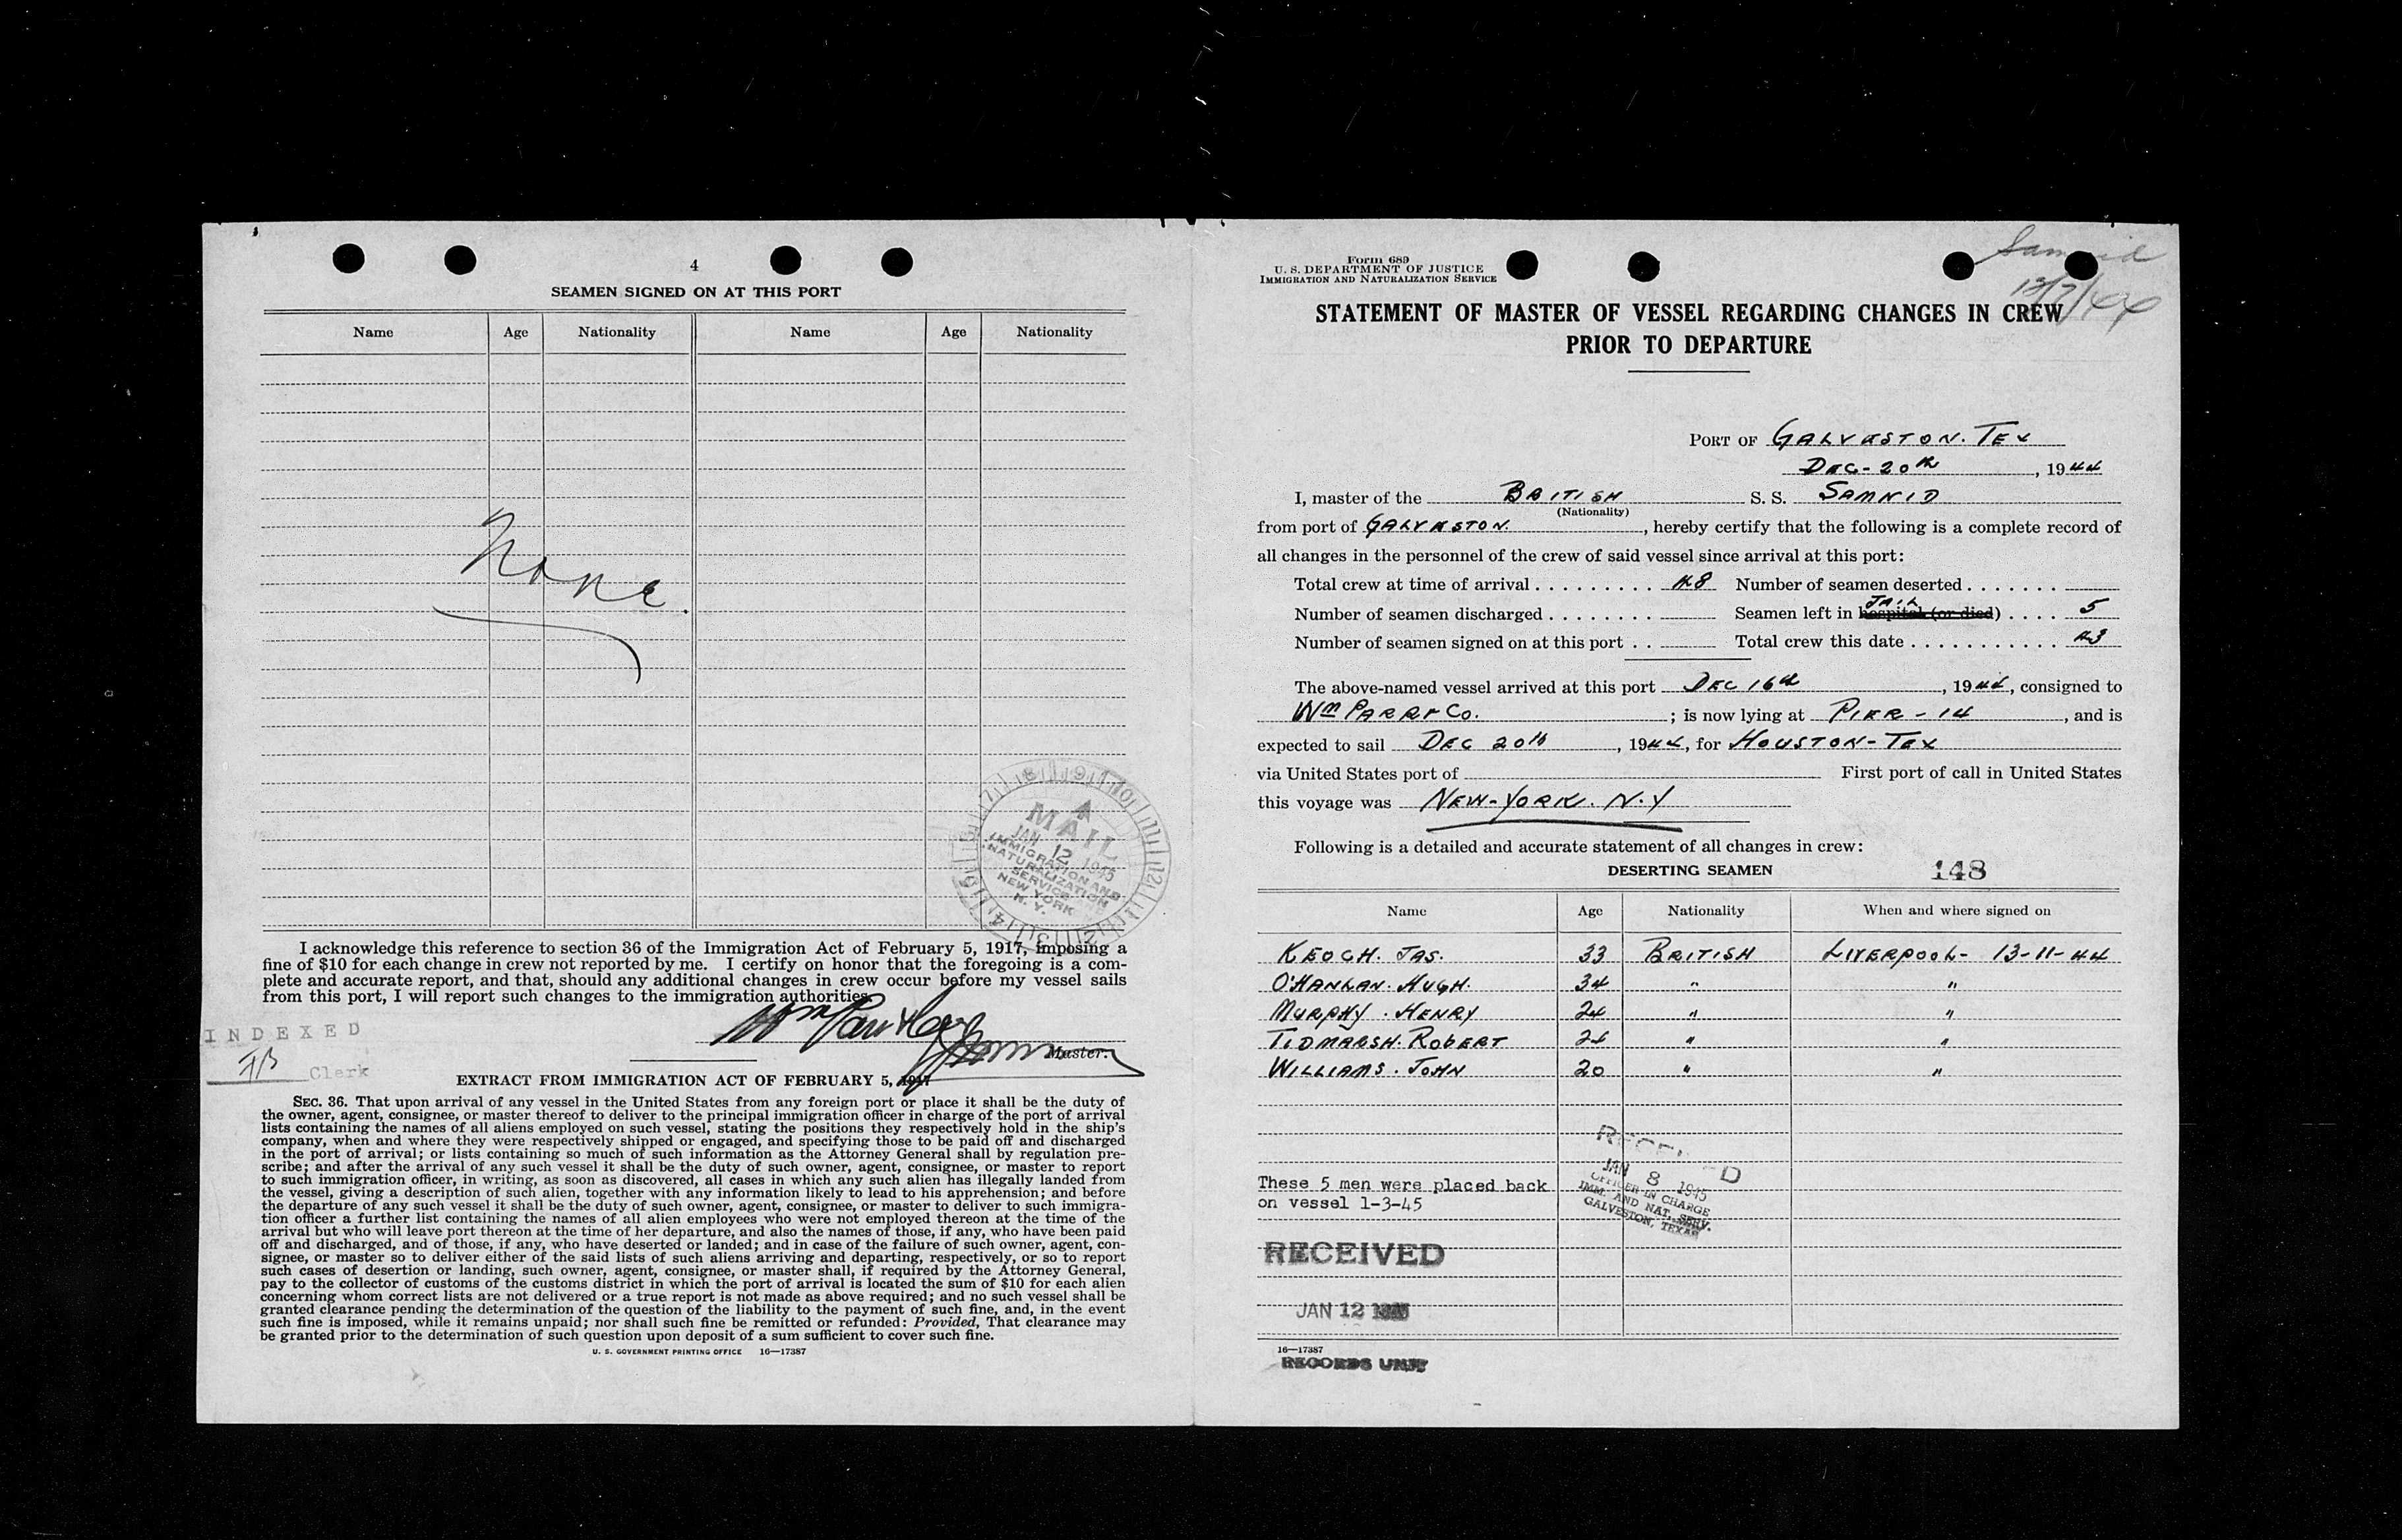 4
SEAMEN SIGNED ON AT THIS PORT
Name Age Nationality Name Age Nationality
None.
A
MAIL
JAN 12 1945
IMMIGRATION AND
NATURALIZATION
SERVICE
NEW YORK
N. Y.
I acknowledge this reference to section 36 of the Immigration Act of February 5, 1917, imposing a
fine of $10 for each change in crew not reported by me. I certify on honor that the foregoing is a com-
plete and accurate report, and that, should any additional changes in crew occur before my vessel sails
from this port, I will report such changes to the immigration authorities
INDEXED
Clerk
Master.
EXTRACT FROM IMMIGRATION ACT OF FEBRUARY 5, 1917
SEC. 36. That upon arrival of any vessel in the United States from any foreign port or place it shall be the duty of
the owner, agent, consignee, or master thereof to deliver to the principal immigration officer in charge of the port of arrival
lists containing the names of all aliens employed on such vessel, stating the positions they respectively hold in the ship's
company, when and where they were respectively shipped or engaged, and specifying those to be paid off and discharged
in the port of arrival; or lists containing so much of such information as the Attorney General shall by regulation pre-
scribe; and after the arrival of any such vessel it shall be the duty of such owner, agent, consignee, or master to report
to such immigration officer, in writing, as soon as discovered, all cases in which any such alien has illegally landed from
the vessel, giving a description of such alien, together with any information likely to lead to his apprehension; and before
the departure of any such vessel it shall be the duty of such owner, agent, consignee, or master to deliver to such immigra-
tion officer a further list containing the names of all alien employees who were not employed thereon at the time of the
arrival but who will leave port thereon at the time of her departure, and also the names of those, if any, who have been paid
off and discharged, and of those, if any, who have deserted or landed; and in case of the failure of such owner, agent, con-
signee, or master so to deliver either of the said lists of such aliens arriving and departing, respectively, or so to report
such cases of desertion or landing, such owner, agent, consignee, or master shall, if required by the Attorney General,
pay to the collector of customs of the customs district in which the port of arrival is located the sum of $10 for each alien
concerning whom correct lists are not delivered or a true report is not made as above required; and no such vessel shall be
granted clearance pending the determination of the question of the liability to the payment of such fine, and, in the event
such fine is imposed, while it remains unpaid; nor shall such fine be remitted or refunded: Provided, That clearance may
be granted prior to the determination of such question upon deposit of a sum sufficient to cover such fine.
U. S. GOVERNMENT PRINTING OFFICE 16—17387
Form 689
U. S. DEPARTMENT OF JUSTICE
IMMIGRATION AND NATURALIZATION SERVICE
STATEMENT OF MASTER OF VESSEL REGARDING CHANGES IN CREW
PRIOR TO DEPARTURE
PORT OF GALVESTON. TEX
DEC - 20th, 1944
I, master of the BRITISH S. S. SAMNID
(Nationality)
from port of GALVESTON., hereby certify that the following is a complete record of
all changes in the personnel of the crew of said vessel since arrival at this port:
Total crew at time of arrival . . . . . . . . . 48 Number of seamen deserted . . . . . . .
Number of seamen discharged . . . . . . . . Seamen left in hospital (or died) JAIL . . . . 5
Number of seamen signed on at this port . . Total crew this date . . . . . . . . . . . 43
The above-named vessel arrived at this port DEC 16th, 1944, consigned to
Wm PARR & Co. ; is now lying at PIER - 14, and is
expected to sail DEC 20th, 1944, for HOUSTON - TEX
via United States port of First port of call in United States
this voyage was NEW-YORK. N.Y
Following is a detailed and accurate statement of all changes in crew:
DESERTING SEAMEN 148
Name Age Nationality When and where signed on
KEOGH. JAS. 33 BRITISH LIVERPOOL - 13-11-44
O'HANLAN. HUGH. 34 " "
MURPHY. HENRY 24 " "
TIDMARSH. ROBERT 24 " "
WILLIAMS. JOHN 20 " "
RECEIVED
JAN 8 1945
OFFICER IN CHARGE
IMM. AND NAT. SERV.
GALVESTON, TEXAS
These 5 men were placed back
on vessel 1-3-45
RECEIVED
JAN 12 1945
16—17387
RECORDS UNIT